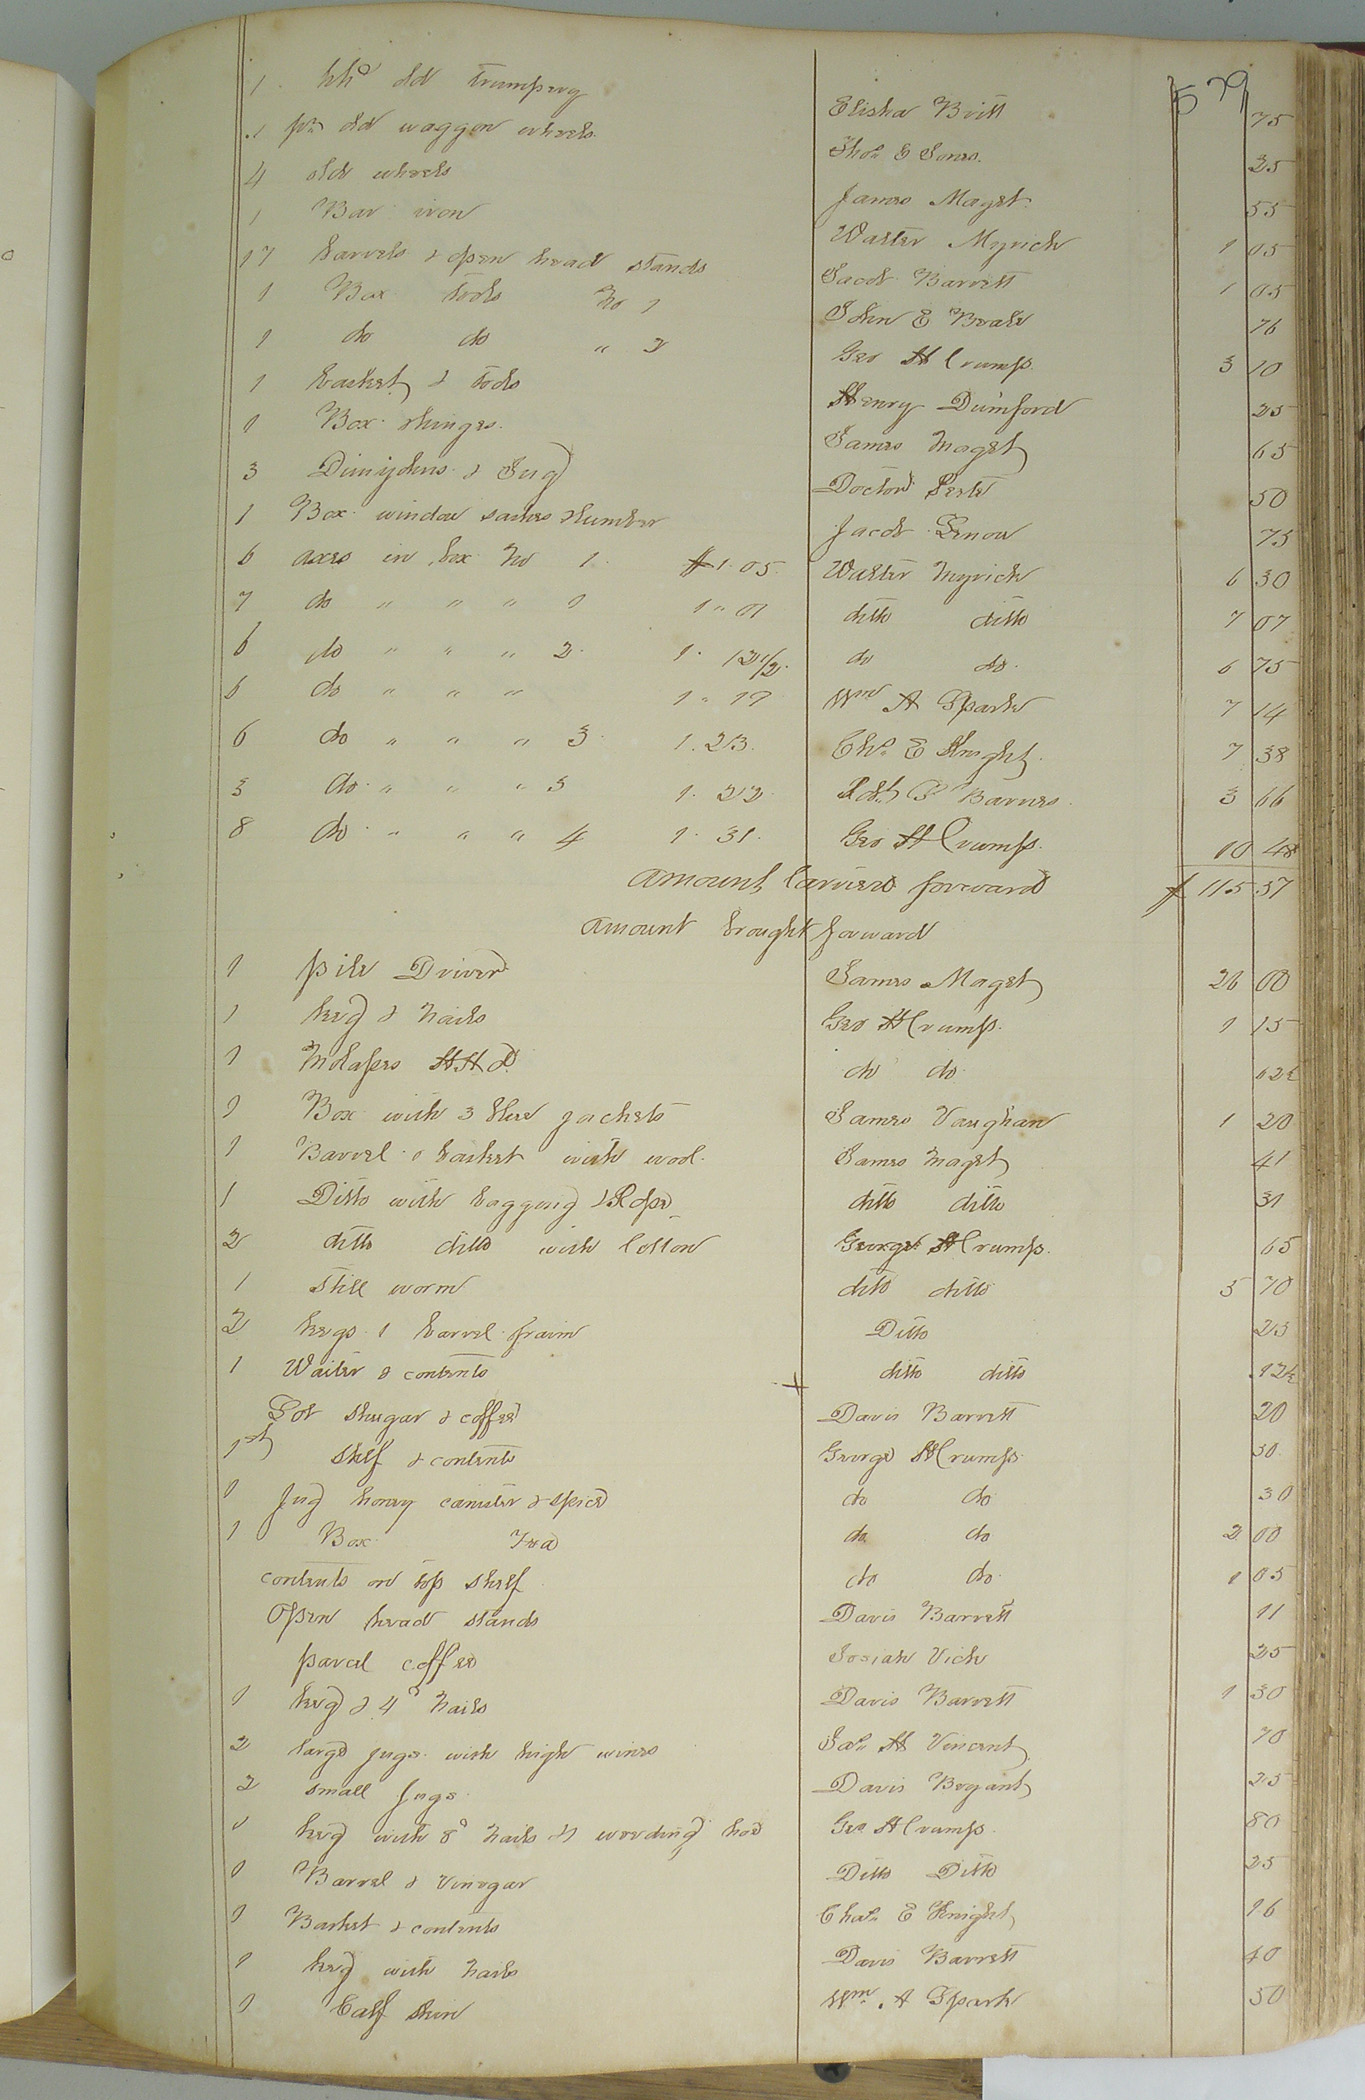 579
1 hhd old trumpery Elisha Britt 75
1 pr old waggon wheels Thos E Jones 25
4 old wheels James Maget 55
1 Bar iron Walter Myrick 1 05
17 barrels & open head stands Jacob Barrett 1 05
1 Box tools No 1 John E Beale 76
1 do do " 2 Geo H Crump 3 10
1 basket & tools Henry Dunford 25
1 Box hinges James Maget 65
3 Dimijohns & Jug Doctor 50
1 Box window sashes & lumber Jacob 75
6 axes in box No 1 $1.05 Walter Myrick 6 30
7 do " " " 1 1 " 01 ditto ditto 7 07
6 do " " " 2 1. 12 1/2 do do 6 75
6 do " " " 1 " 19 Wm A Spark 7 14
6 do " " " 3 1.23 Chs E Knight 7 38
3 do " " " 3 1.22 Robt P Barnes 3 66
8 do " " " 4 1.31 Geo H Crump 10 48
amount Carried forward $ 115 57
amount brought forward
1 pile Driver James Maget 26 00
1 keg & nails Geo H Crump 1 15
1 Molasses HHd do do 62½
1 Box with 3 blue jackets James Vaughan 1 20
1 Barrel & basket with wool James Maget 41
1 Ditto with bagging & Rope ditto ditto 31
2 ditto ditto with Cotton George H Crump 65
1 still worm ditto ditto 5 70
2 kegs 1 barrel fraim Ditto 25
1 Waiter & contents ditto ditto 12½
Lot shugar & coffee Davis Barrett 20
1st shelf & contents George H Crump 30
1 jug honey canister & spice do do 30
1 Box Tea do do 2 00
contents on top shelf do do 1 05
Open head stands Davis Barrett 11
parcel coffee Josiah Vick 25
1 keg & 4d nails Davis Barrett 1 30
2 large jugs with high wines Jas H Vincent 70
2 small Jugs Davis Bryant 25
1 keg with 8d nails & weeding hoe Geo H Crump 80
1 Barrel & vinegar Ditto Ditto 25
1 Basket & contents Chas E Knight 16
1 keg with nails Davis Barrett 40
1 Calf skin Wm A Spark 50